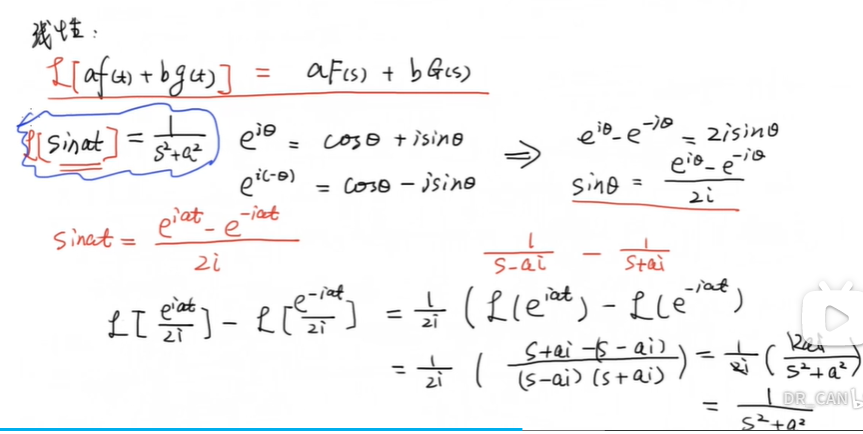 线性:
ℒ[af(t)+bg(t)] = aF(s) + bG(s)
ℒ[sinat] = 1/(s²+a²)
e^{iθ} = cosθ + isinθ
e^{i(-θ)} = cosθ - isinθ
⇒
e^{iθ} - e^{-iθ} = 2isinθ
sinθ = (e^{iθ} - e^{-iθ})/2i
sinat = (e^{iat} - e^{-iat})/2i
1/(s-ai) - 1/(s+ai)
ℒ[e^{iat}/2i] - ℒ[e^{-iat}/2i] = 1/2i (ℒ(e^{iat}) - ℒ(e^{-iat})
= 1/2i ( (s+ai-(s-ai))/((s-ai)(s+ai)) ) = 1/2i (2ai/(s²+a²))
= 1/(s²+a²)
DR_CAN